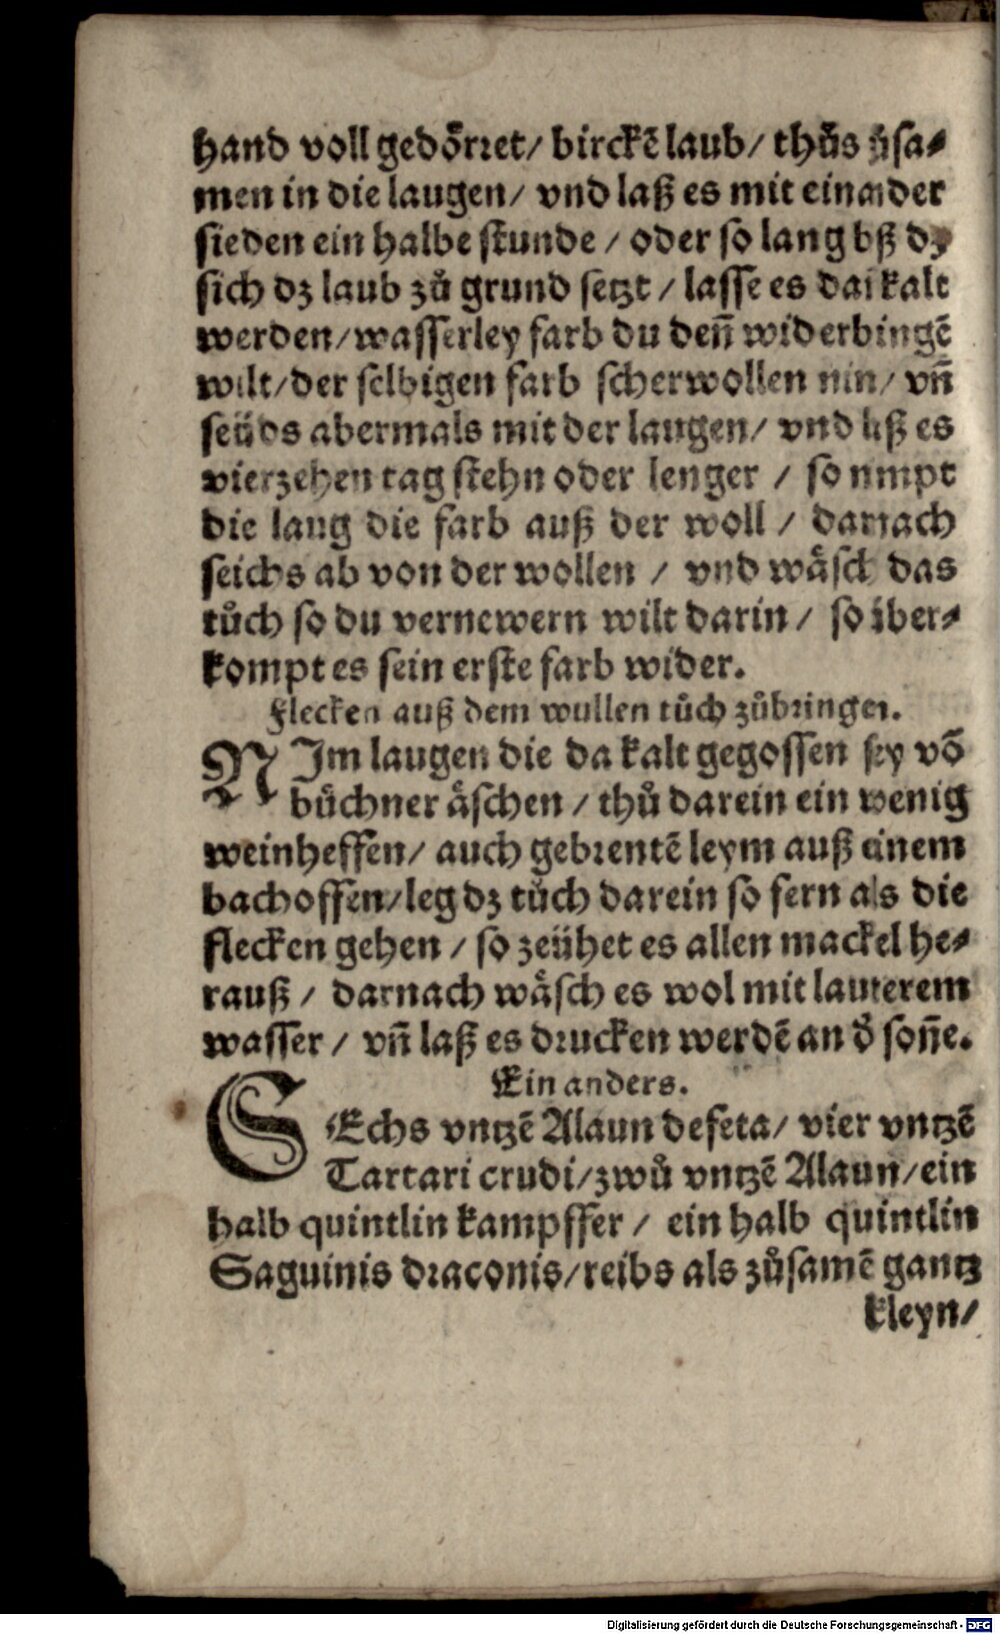 hand voll gedörret/ birckē laub/ thůs zůsa-
men in die laugen/ vnd laß es mit einander
sieden ein halbe stunde / oder so lang bß dz
sich dz laub zů grund setzt / lasse es dañ kalt
werden/wasserley farb du deñ widerbingē
wilt/der selbigen farb scherwollen nim/ vñ
seüds abermals mit der laugen/ vnd laß es
vierzehen tag stehn oder lenger / so nimpt
die laug die farb auß der woll / darnach
seichs ab von der wollen / vnd wäsch das
tůch so du vernewern wilt darin / so über-
kompt es sein erste farb wider.
Flecken auß dem wullen tůch zůbringen.
NIm laugen die da kalt gegossen sey vō
bůchner äschen / thů darein ein wenig
weinheffen/ auch gebrentē leym auß einem
bachoffen/leg dz tůch darein so fern als die
flecken gehen / so zeühet es allen mackel he-
rauß / darnach wäsch es wol mit lauterem
wasser / vñ laß es drucken werdē an d̕ soñe.
Ein anders.
SEchs vntzē Alaun defeta/ vier vntzē
Tartari crudi/zwů vntzē Alaun/ein
halb quintlin kampffer / ein halb quintlin
Saguinis draconis/reibs als zůsamē gantz
kleyn/
Digitalisierung gefördert durch die Deutsche Forschungsgemeinschaft - DFG